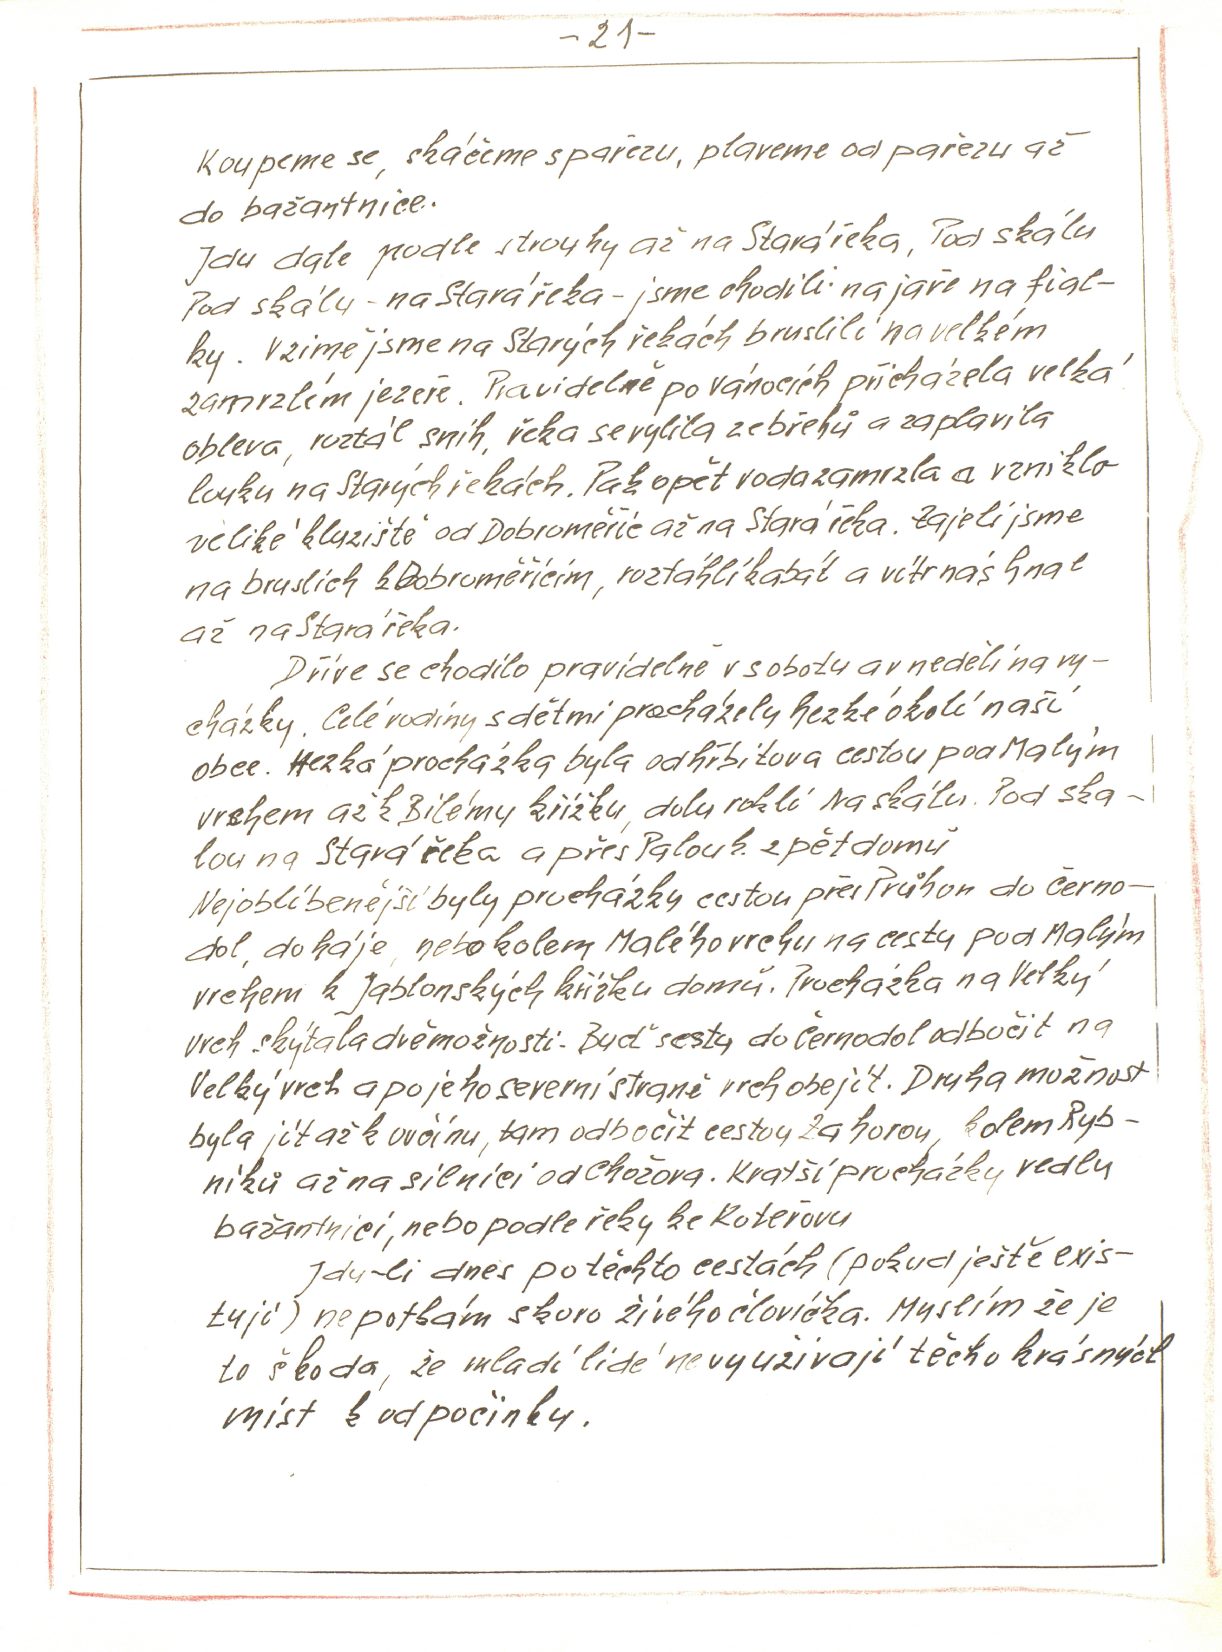 -21-
Koupeme se, skáčeme s pařezu, plaveme od pařezu až
do bažantnice.
Jdu dále podle strouhy až na Stará řeka, Pod skálu
Pod skálu - na Stará řeka - jsme chodili na jaře na fial-
ky. V zimě jsme na Starých řekách bruslili na velkém
zamrzlém jezeře. Pravidelně po Vánocích přicházela velká
obleva, roztál sníh, řeka se vylila ze břehů a zaplavila
louku na Starých řekách. Pak opět voda zamrzla a vzniklo
veliké kluziště od Dobroměřic až na Stará řeka. Zajeli jsme
na bruslích k Dobroměřicím, roztáhli kabát a vítr nás hnal
až na Stará řeka.
Dříve se chodilo pravidelně v sobotu a v neděli na vy-
cházky. Celé rodiny s dětmi procházely hezké okolí naší
obce. Hezká procházka byla od hřbitova cestou pod Malým
vrchem až k Bílému křížku, dolu roklí Na skálu. Pod ska-
lou na Stará řeka a přes Palouk zpět domů
Nejoblíbenější byly procházky cestou přes Průhon do Černo-
dol, do háje, nebo kolem Malého vrchu na cestu pod Malým
vrchem k Jablonských křížku domů. Procházka na Velký
vrch skýtala dvě možnosti. Buď scesty do Černodol odbočit na
Velký vrch a po jeho severní straně vrch obejít. Druhá možnost
byla jít až k ovčínu, tam odbočit cestou Za horou, kolem Ryb-
níků až na silnici od Chožova. Kratší procházky vedly
bažantnicí, nebo podle řeky ke Koteřovu
Jdu-li dnes po těchto cestách (pokud ještě exis-
tují) nepotkám skoro živého človíčka. Myslím že je
to škoda, že mladí lidé nevyužívají těcho krásných
míst k odpočinku.